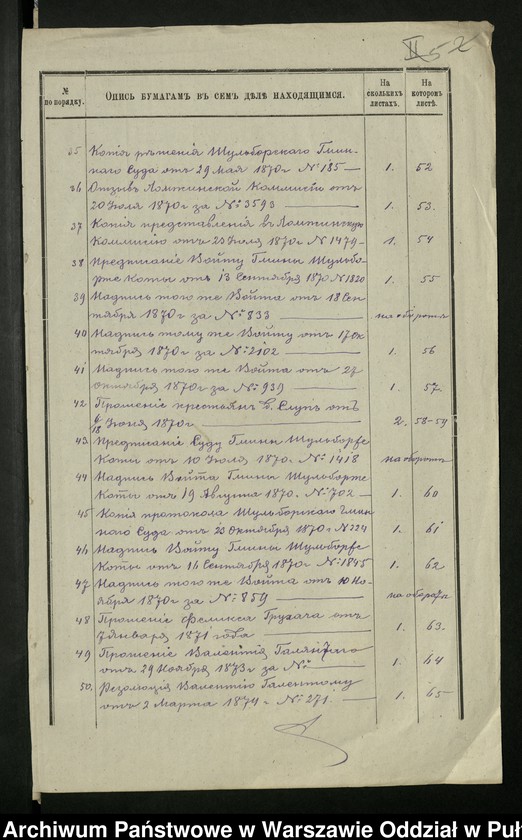 II 52
№ по порядку.
Опись бумагамъ въ семъ дѣлѣ находящимся.
На сколькихъ листахъ.
На которомъ листѣ.
35 Копія рѣшенія Шульборскаго Гмин-
наго Суда отъ 29 Мая 1870 г № 185 — 1. 52
36 Отзывъ Ломжинской Коммисіи отъ
20 Іюля 1870 г за № 3593 — 1. 53.
37 Копія представленія въ Ломжинскую
Коммисію отъ 23 Іюля 1870 г № 1479 — 1. 54
38 Предписаніе Войту Гмины Шульбо-
рже Коты отъ 13 Сентября 1870 № 1820 1. 55
39 Надпись того же Войта отъ 18 Сен
тября 1870 г за № 833 — на оборотѣ
40 Надпись тому же Войту отъ 17 Ок
тября 1870 г за № 2102 — 1. 56
41 Надпись того же Войта отъ 27
Октября 1870 г за № 939 — 1. 57.
42 Прошеніе крестьянъ в. Слупъ отъ
18 Іюня 1870 г — 2. 58-59
43 Предписаніе Суду Гмины Шульборже
Коты отъ 10 Іюля 1870 г № 1418 на оборотѣ
44 Надпись Войта Гмины Шульборже
Коты отъ 19 Августа 1870 г № 702 — 1. 60
45 Копія протокола Шульборскаго Гмин
наго Суда отъ 23 Октября 1870 г № 224 1. 61
46 Надпись Войту Гмины Шульборже
Коты отъ 16 Сентября 1870 г № 1845 1. 62
47 Надпись того же Войта отъ 10 Но-
ября 1870 г за № 859 — на оборотѣ
48 Прошеніе Феликса Грудача отъ
7 Января 1871 года — 1. 63.
49 Прошеніе Валентія
отъ 29 Ноября 1873 г за № — 1. 64
50. Резолюція Валентію Галентому
отъ 2 Марта 1874 г № 271. — 1. 65
Archiwum Państwowe w Warszawie Oddział w Puł